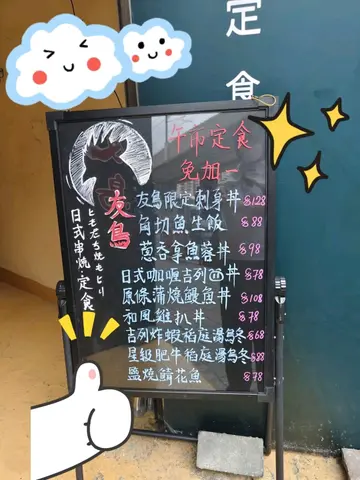 定食
午市定食
免加一
友鳥
ともだち焼もとり
日式串燒·定食
友鳥限定刺身丼 $128
角切魚生飯 $88
蔥吞拿魚蓉丼 $98
日式咖喱吉列凹丼 $78
原條蒲燒鰻魚丼 $108
和風雞扒丼 $78
吉列炸蝦稻庭湯烏冬 $68
星級肥牛稻庭湯烏冬 $88
鹽燒鯖花魚 $78